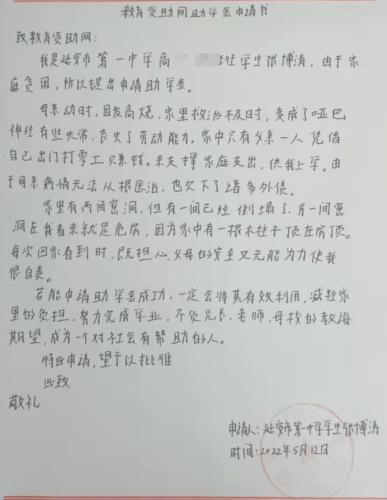 教育资助网助学金申请书
致教育资助网:
我是延安市第一中学高 班学生张博涛,由于家
庭贫困,所以提出申请助学金。
母亲幼时,因发高烧,家里救治不及时,变成了哑巴
神经有些失常,丧失了劳动能力。家中只有父亲一人凭借
自己出门打零工只赚钱。来支撑家庭支出,供我上学。由
于母亲病情无法从根医治,也欠下了诸多外债。
家里有两间窑洞,但有一间已经倒塌了,另一间窑
洞在我看来就是危房,因为家中有一根木柱子顶在房顶。
每次回家看到时,既担心父母的安全又无能为力使我
很自责。
若能申请助学金成功,一定会将其有效利用,减轻家
里的负担,努力完成学业,不负兄长、老师、母校的教诲
期望,成为一个对社会有帮助的人。
特此申请,望予以批准
此致
敬礼
申请人:延安市第一中学学生张博涛
时间:2022年5月12日